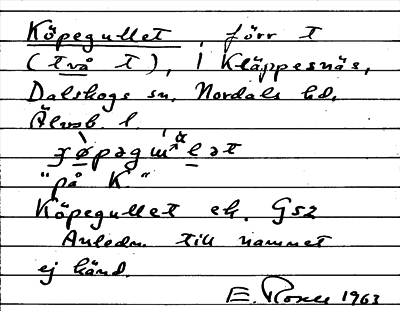 Köpegullet, förr t
(två t), i Kläppesnäs,
Dalskogs sn, Nordals hd,
Älvsb. l.
"på K."
Köpegullet ek. G52
Anledn. till namnet
ej känd.
E. 1963